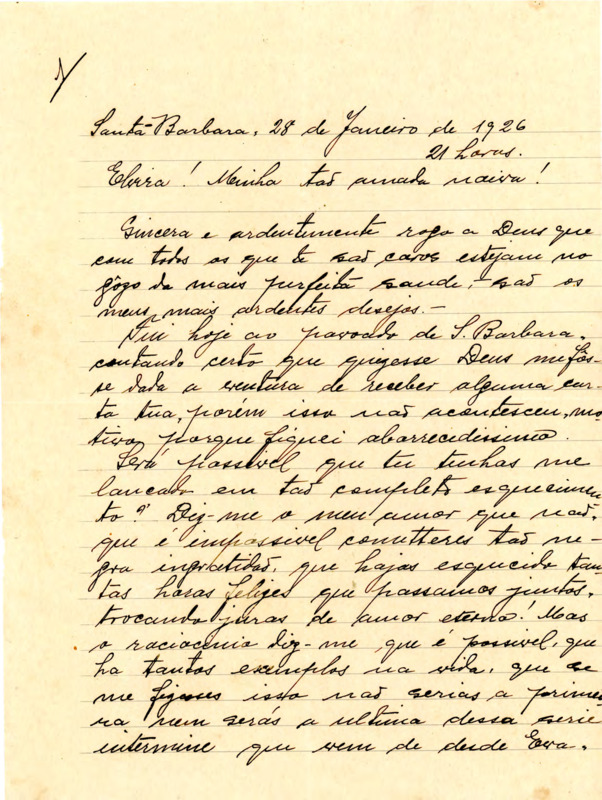 1/
Santa Barbara, 28 de Janeiro de 1926
21 horas.
Elvira! Minha tão amada noiva!
Sincera e ardentemente rogo a Deus que
com todos os que te são caros estejam no
gôzo da mais perfeita saude, - são os
meus mais ardentes desejos. -
Fui hoje ao povoado de S. Barbara,
contando certo que quizesse Deus me fôs-
se dada a ventura de receber alguma car-
ta tua, porém isso não acontesceu, mo-
tivo porque fiquei aborrecidissimo.
Será possivel que tu tenhas me
lancado em tão completo esquecimen-
to? Diz-me o meu amor que não,
que é impossivel cometteres tão ne-
gra ingratidão, que hajas esquecido tan-
tas horas felizes que passamos juntos,
trocando juras de amor eterno! Mas
o raciocenio diz-me que é possivel, que
ha tantos exemplos na vida, que se
me fizeses isso não serias a primei-
ra nem serás a ultima dessa serie
intermine que vem de desde Eva.